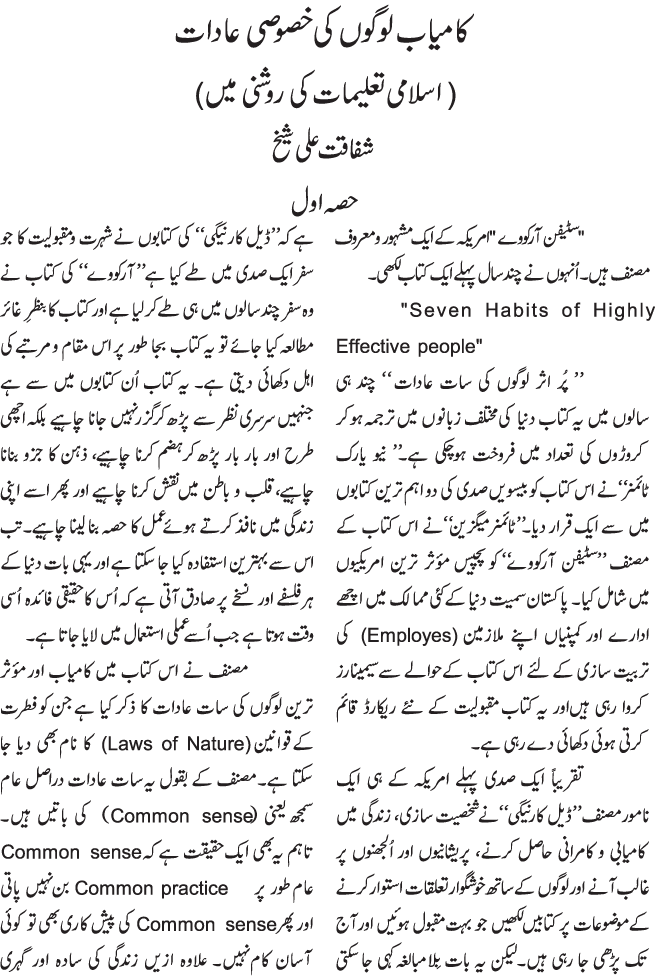 کامیاب لوگوں کی خصوصی عادات
( اسلامی تعلیمات کی روشنی میں)
شفاقت علی شیخ
حصہ اول
"سٹیفن آرکووے "امریکہ کے ایک مشہور و معروف
مصنف ہیں۔ اُنہوں نے چند سال پہلے ایک کتاب لکھی۔
"Seven Habits of Highly
Effective people"
’’ پُر اثر لوگوں کی سات عادات‘‘ چند ہی
سالوں میں یہ کتاب دنیا کی مختلف زبانوں میں ترجمہ ہو کر
کروڑوں کی تعداد میں فروخت ہوچکی ہے۔’’ نیو یارک
ٹائمنر‘‘نے اس کتاب کو بیسویں صدی کی دو اہم ترین کتابوں
میں سے ایک قرار دیا۔’’ٹائمنر میگزین‘‘نے اس کتاب کے
مصنف ’’سٹیفن آرکووے‘‘ کو پچیس مؤثر ترین امریکیوں
میں شامل کیا۔ پاکستان سمیت دنیا کے کئی ممالک میں اچھے
ادارے اور کمپنیاں اپنے ملازمین (Employes) کی
تربیت سازی کے لئے اس کتاب کے حوالے سے سیمینارز
کروا رہی ہیں اور یہ کتاب مقبولیت کے نئے ریکارڈ قائم
کرتی ہوئی دکھائی دے رہی ہے۔
تقریباً ایک صدی پہلے امریکہ کے ہی ایک
نامور مصنف ’’ڈیل کارنیگی‘‘نے شخصیت سازی، زندگی میں
کامیابی و کامرانی حاصل کرنے، پریشانیوں اور اُلجھنوں پر
غالب آنے اور لوگوں کے ساتھ خوشگوار تعلقات استوار کرنے
کے موضوعات پر کتابیں لکھیں جو بہت مقبول ہوئیں اور آج
تک پڑھی جا رہی ہیں۔ لیکن یہ بات بِلا مبالغہ کہی جاسکتی
ہے کہ’’ڈیل کارنیگی‘‘ کی کتابوں نے شہرت و مقبولیت کا جو
سفر ایک صدی میں طے کیا ہے’’آرکووے‘‘ کی کتاب نے
وہ سفر چند سالوں میں ہی طے کر لیا ہے اور کتاب کا بنظرِ غائر
مطالعہ کیا جائے تو یہ کتاب بجا طور پر اس مقام و مرتبے کی
اہل دکھائی دیتی ہے۔ یہ کتاب اُن کتابوں میں سے ہے
جنہیں سرسری نظر سے پڑھ کر گزر نہیں جانا چاہیے بلکہ اچھی
طرح اور بار بار پڑھ کر ہضم کرنا چاہیے، ذہن کا جزو بنانا
چاہیے، قلب و باطن میں نقش کرنا چاہیے اور پھر اسے اپنی
زندگی میں نافذ کرتے ہوئے عمل کا حصہ بنا لینا چاہیے۔ تب
اس سے بہترین استفادہ کیا جا سکتا ہے اور یہی بات دنیا کے
ہر فلسفے اور نسخے پر صادق آتی ہے کہ اُس کا حقیقی فائدہ اُسی
وقت ہوتا ہے جب اُسے عملی استعمال میں لایا جاتا ہے۔
مصنف نے اس کتاب میں کامیاب اور مؤثر
ترین لوگوں کی سات عادات کا ذکر کیا ہے جن کو فطرت
کے قوانین (Laws of Nature) کا نام بھی دیا جا
سکتا ہے۔ مصنف کے بقول یہ سات عادات دراصل عام
سمجھ یعنی (Common sense) کی باتیں ہیں۔
تاہم یہ بھی ایک حقیقت ہے کہ Common sense
عام طور پر Common practice بن نہیں پاتی
اور پھر Common sense کی پیش کاری بھی تو کوئی
آسان کام نہیں۔ علاوہ ازیں زندگی کی سادہ اور گہری